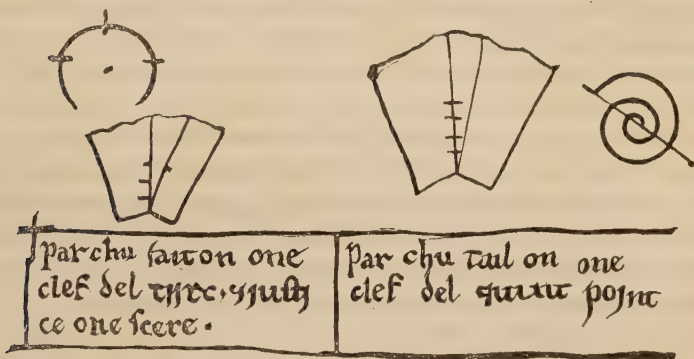 Par chu fait on one
clef del tijrc, 7 iusti
ce one scere.
Par chu tail on one
clef del quint point